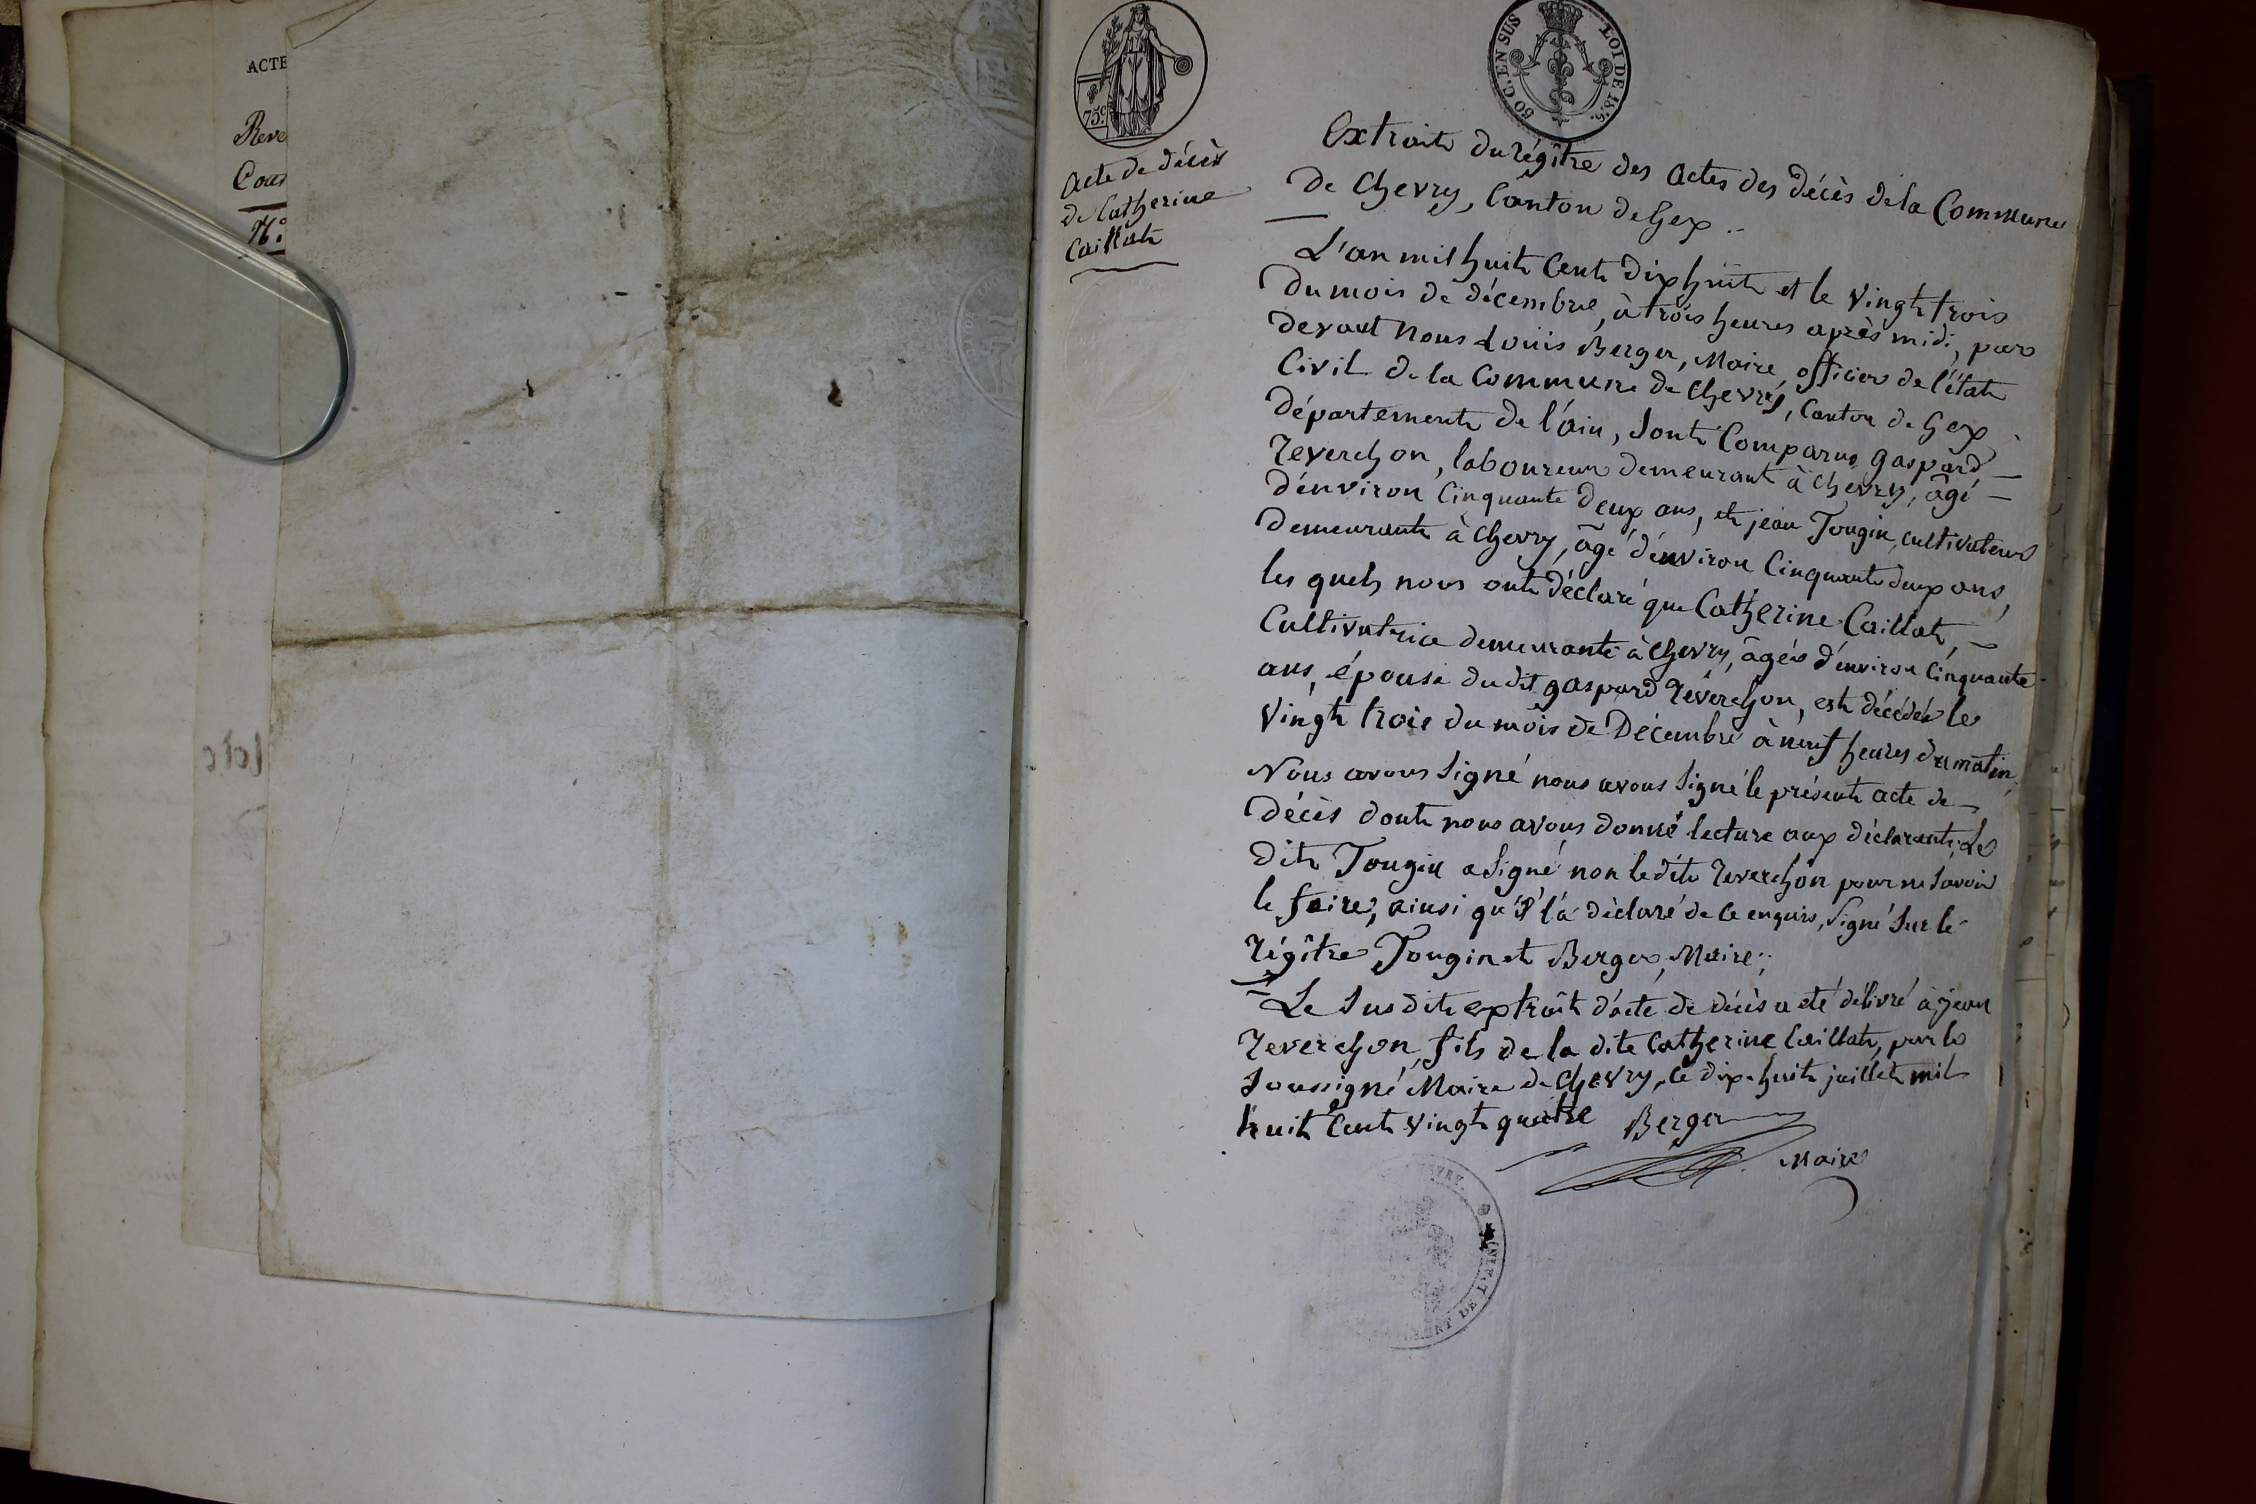 ACTE
Reve
Cour
N.º
75.c
50 C. EN SUS
LOI DE 1816.
Acte de décès
de Catherine
Caillat
Extrait du régître des Actes des décès de la Commune
de Chevry, Canton de Gex ..
L'an mil huit Cent dix huit et le vingt trois
du mois de décembre, à trois heures après midi, par
devant Nous Louis Berger, Maire, officier de l'état
Civil de la Commune de Chevry, Canton de Gex
département de l'ain, sont Comparus gaspard
reverchon, laboureur demeurant à Chevry, âgé
d'environ Cinquante deux ans, et jean Tougin, cultivateur
demeurant à Chevry, âgé d'environ Cinquante deux ans,
les quels nous ont déclaré que Catherine Caillat,
Cultivatrice demeurante à Chevry, âgée d'environ Cinquante
ans, épouse du dit gaspard reverchon, est décédée le
vingt trois du mois de Décembre à neuf heures du matin,
Nous avons signé nous avons signé le présent acte de
décès dont nous avons donné lecture aux déclarants, Le
dit Tougin a signé non le dit reverchon pour ne savoir
le faire, ainsi qu'il l'a déclaré de ce enquis, signé sur le
régître Tougin et Berger, Maire;
Le susdit extrait d'acte de décès a été délivré à jean
reverchon, fils de la dite Catherine Caillat, par le
soussigné Maire de Chevry, le dix-huit juillet mil
huit Cent vingt quatre Berger
Maire
DE L'AIN